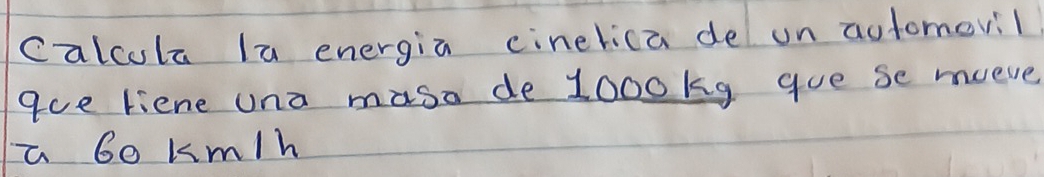 Calcula la energia cinetica de un automovil
que tiene una masa de 1000 kg que se mueve
a 60 km/h